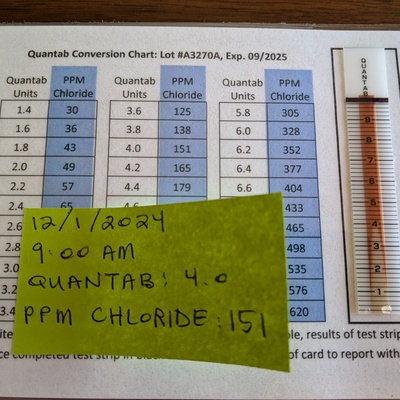 Quantab Conversion Chart: Lot #A3270A, Exp. 09/2025
Quantab Units PPM Chloride Quantab Units PPM Chloride Quantab Units PPM Chloride
1.4 30 3.6 125 5.8 305
1.6 36 3.8 138 6.0 328
1.8 43 4.0 151 6.2 352
2.0 49 4.2 165 6.4 377
2.2 57 4.4 179 6.6 404
2.4 65 433
2.6 465
2.8 498
3.0 535
3.2 576
3.4 620
QUANTAB
9
8
7
6
5
4
3
2
1
12/1/2024
9:00 AM
QUANTAB: 4.0
PPM CHLORIDE: 151
results of test strip
completed test strip in
of card to report with